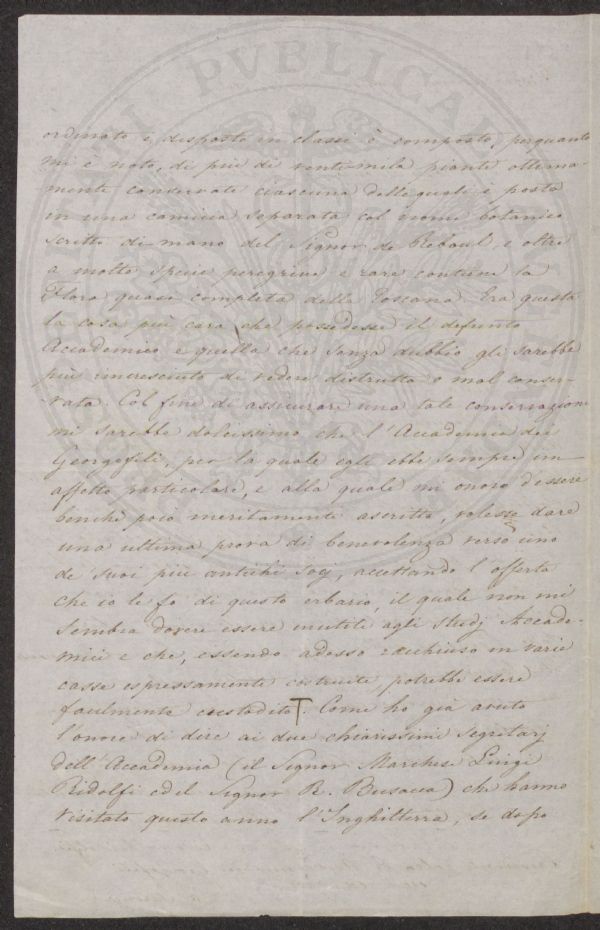 ordinato e disposto in classi è composto, perquanto
mi è noto, di più di ventimila piante ottima-
mente conservate ciascuna delle quali è posta
in una camicia separata col nome botanico
scritto di mano del Signor de Reboul, e oltre
a molte specie peregrine e rare contiene la
Flora quasi completa della Toscana. Era questa
la cosa più cara che possedesse il defunto
Accademico e quella che senza dubbio gli sarebbe
più incresciuto di vedere distrutta o mal conser-
vata. Col fine di assicurare una tale conservazione
mi sarebbe dolcissimo che l'Accademia dei
Georgofili, per la quale egli ebbe sempre un
affetto particolare, e alla quale mi onoro d'essere
benchè poco meritamente ascritto, volesse dare
una ultima prova di benevolenza verso uno
de' suoi più antichi Socj, accettando l'offerta
che io le fo di questo erbario, il quale non mi
sembra dovere essere inutile agli studj Accade-
mici e che, essendo adesso racchiuso in varie
casse espressamente costruite, potrebbe essere
facilmente custodito. Come ho già avuto
l'onore di dire ai due chiarissimi Segretarj
dell'Accademia (il Signor Marchese Luigi
Ridolfi ed il Signor R. Busacca) che hanno
visitato questo anno l'Inghilterra, se dopo